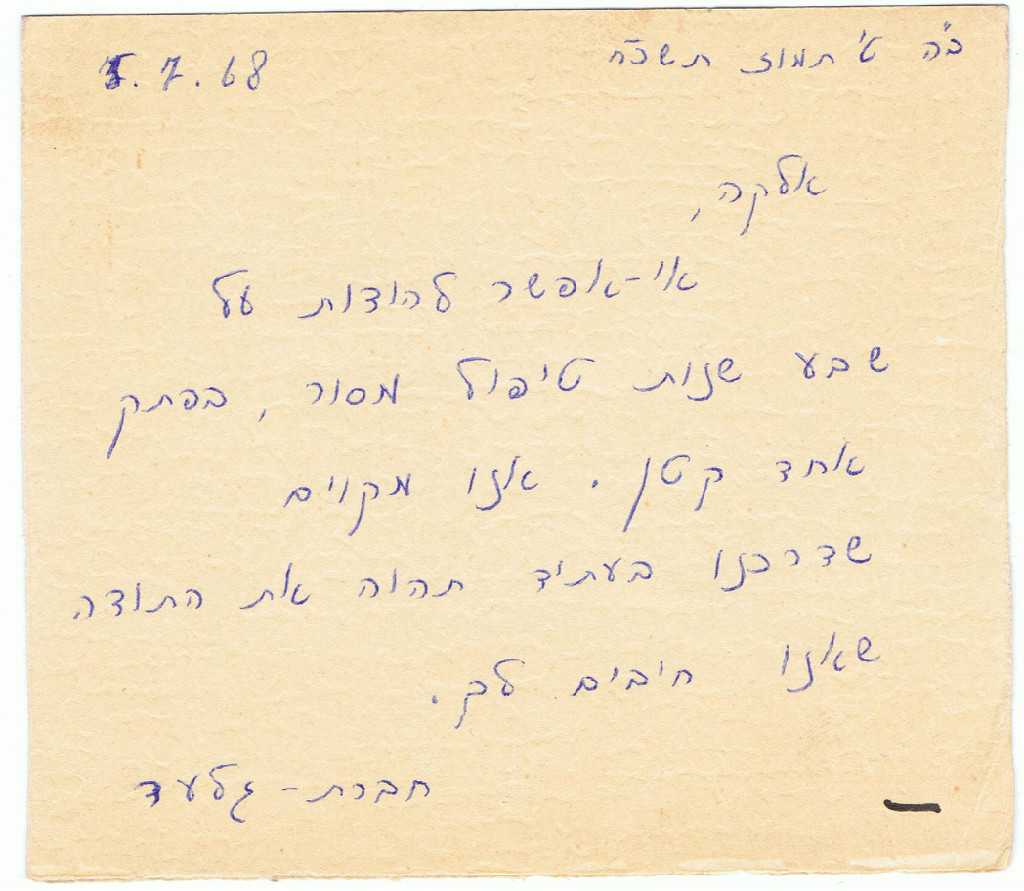 ב"ה ט' תמוז תשכ"ח 5.7.68
אלקה,
אי-אפשר להודות על
שבע שנות טיפול מסור, בפתק
אחד קטן. אנו מקוים
שדרכנו בעתיד תהוה את התודה
שאנו חיבים לך.
חברת-גלעד